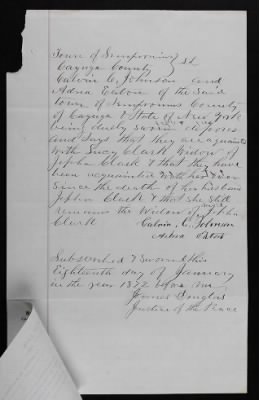 Town of Sempronius
Cayuga County } SS
Calvin C. Johnson and
Adna Eaton of the said
town of Sempronius County
of Cayuga & State of New York
being duely sworn deposes
and says that they are aquainted
with Lucy Clark Widow of
Jeptha Clark & that they have
been acquainted with her ever
Since the death of her husband
Jeptha Clark & that she still
remains the Widow of Jeptha
Clark
Calvin C. Johnson
Adna Eaton
Subscribed & Sworn this
Eighteenth day of January
in the year 1872 before me
James Douglas
Justice of the Peace